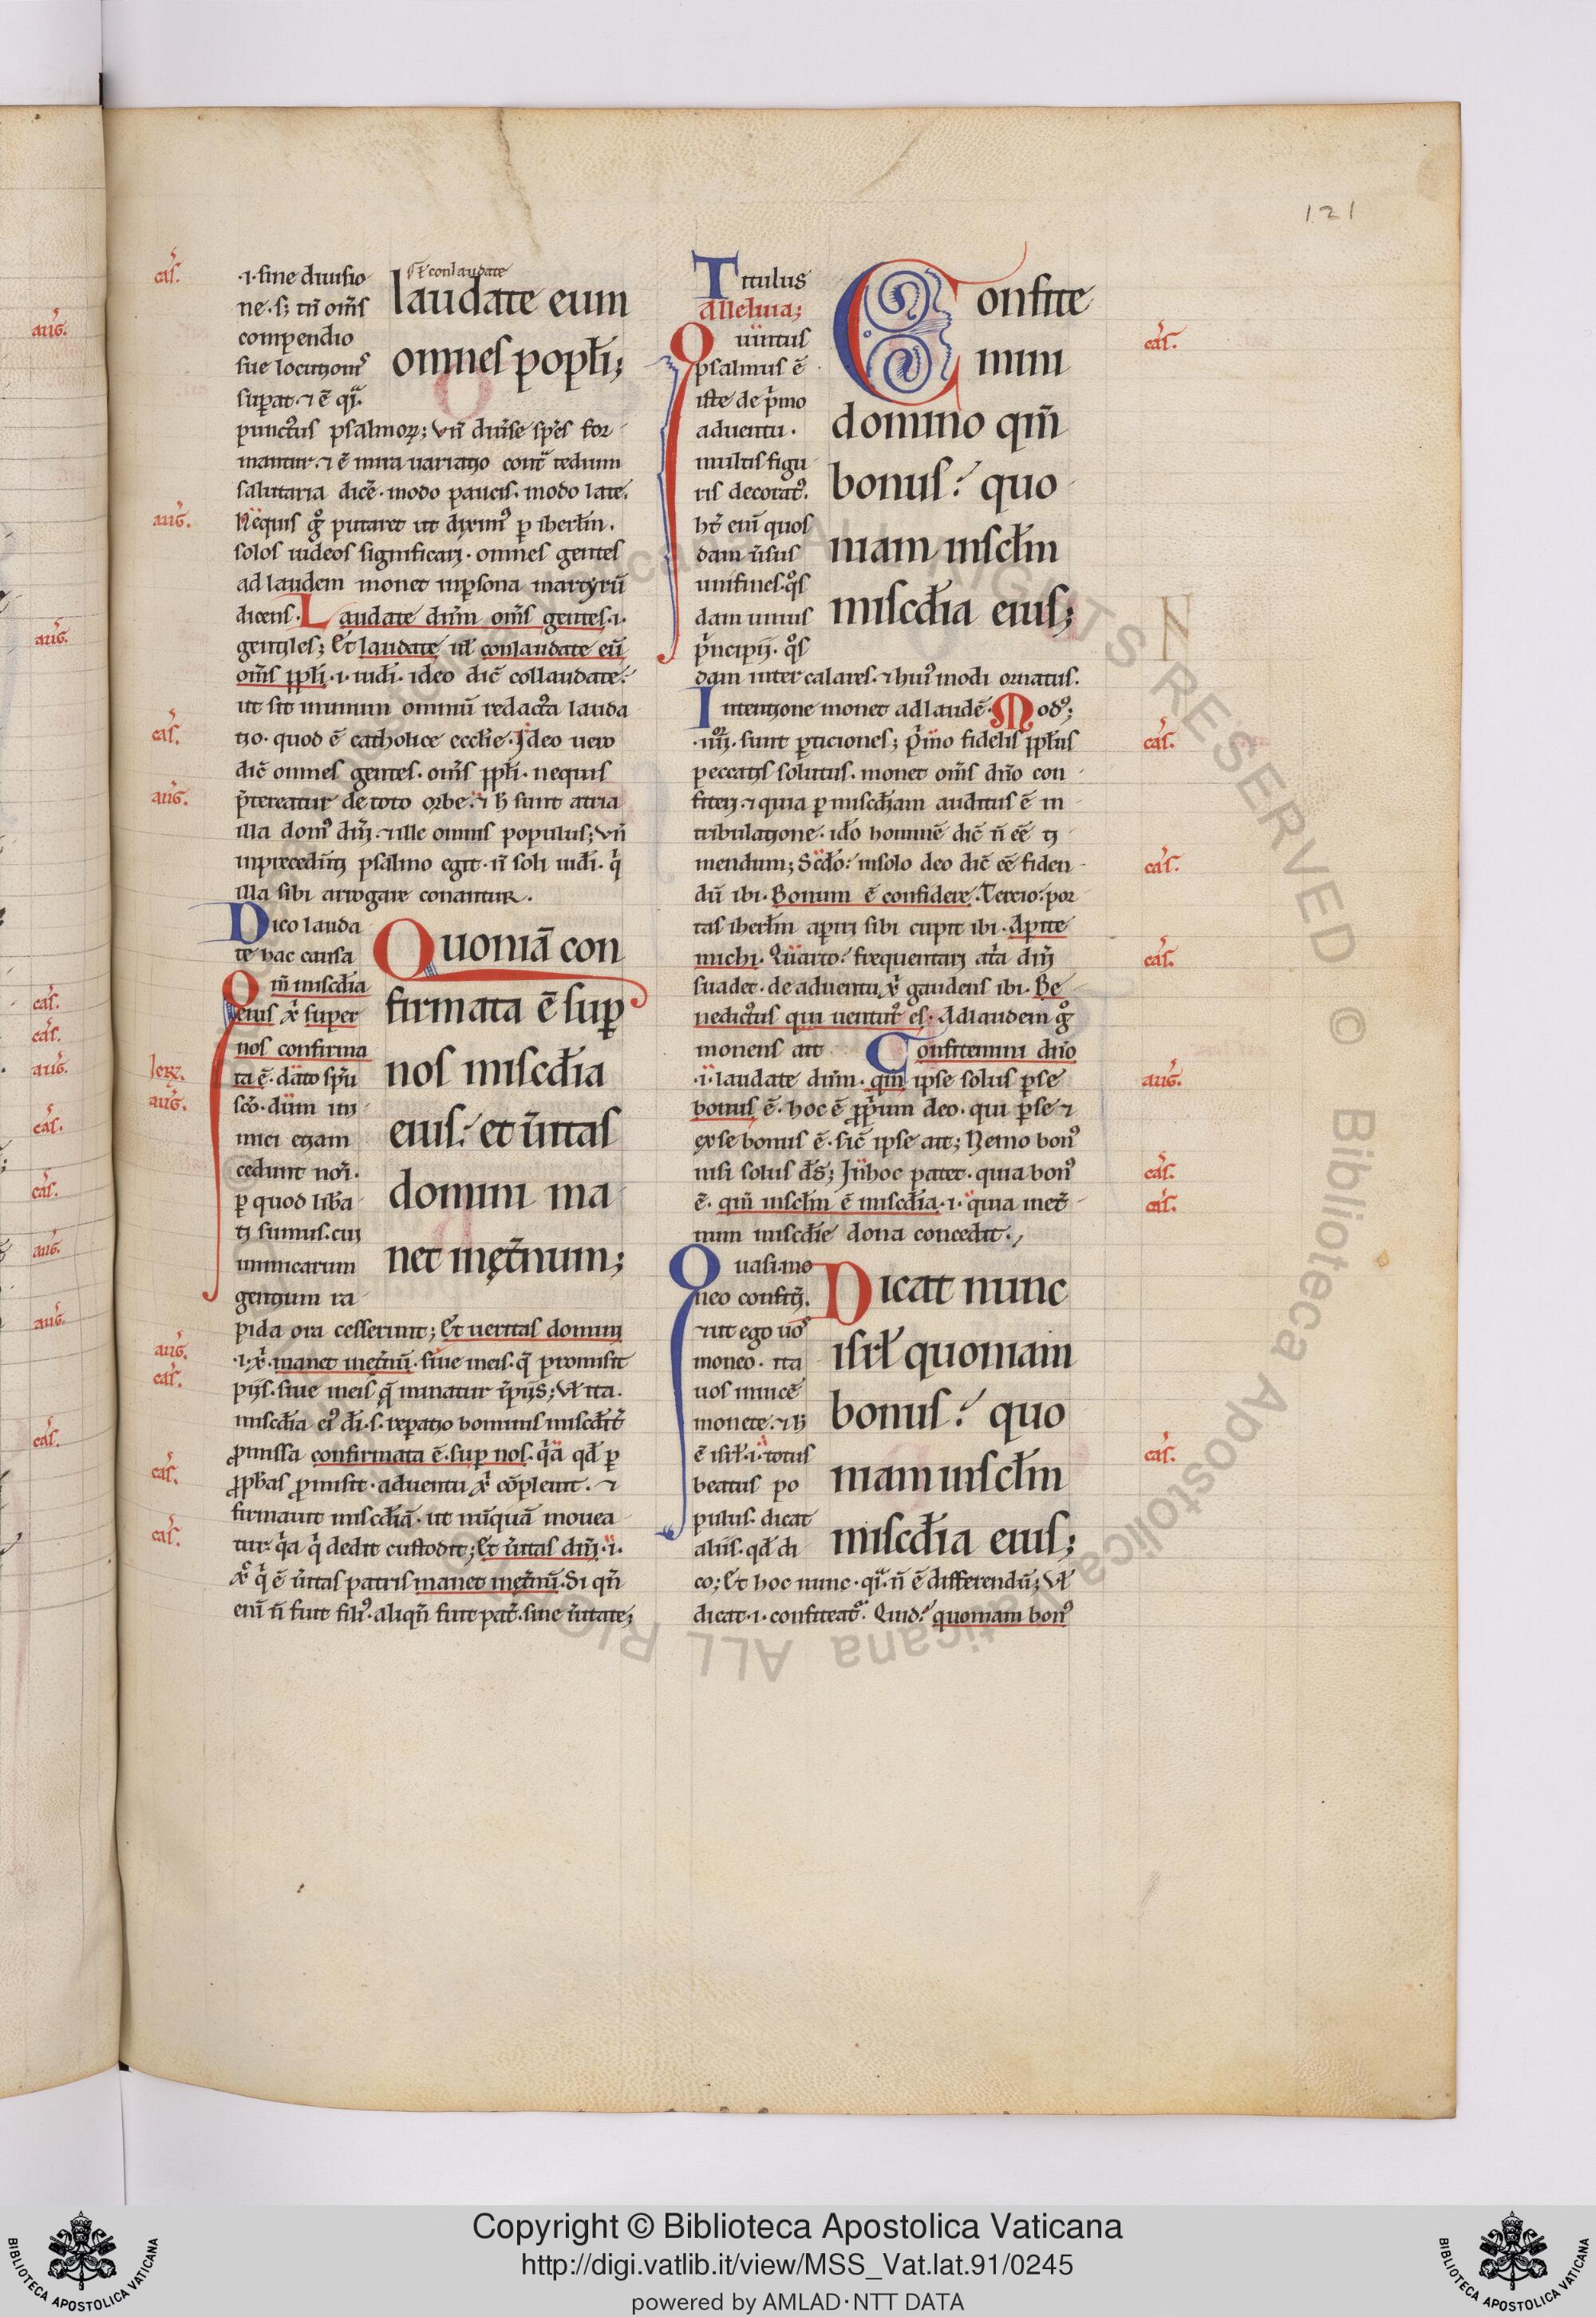 121
caſ.
·i· ſine diuiſio
ne· ſ; tm̄ om̄ſ
compendio
ſue locutioniſ
ſupat· ⁊ ē qi
punctuſ pſalmoꝝ; vn̄ diuſe ſpeſ for
mantur· ⁊ ē mira uariatio cont̄ tedium
ſalutaria dicē· modo pauciſ· modo late.
aug̃.
Nequiſ g̊ putaret ut diximꝰ p iherlm̄.
ſoloſ iudeoſ ſignificari· omneſ genteſ
ad laudem monet inpſona martyrū
dicenſ· Laudate dn̄m om̄ſ genteſ·i·
gentileſ; Et laudate ul̄ conlaudate eū
om̄ſ ppl̄i·i· iudi· ideo dic̄ collaudate:
ut ſit unum omniū redacta lauda
caſ.
tio· quod ē catholice eccłie· Ideo uero
dic̄ omneſ genteſ· om̄ſ ppl̄i· nequiſ
aug̃.
p̄tereatur de toto orbe· ⁊ h̄ ſunt atria
illa domꝰ dn̄i· ⁊ ille omniſ populuſ; vn̄
inprecedn̄ti pſalmo egit· n̄ ſoli iudi· q̄
illa ſibi arrogare conantur.
ſ. conlaudate
laudate eum
omneſ popl̄i;
Dico lauda
te hac cauſa
Qm̄ miſcd̄ia
eiuſ ꝶ ſuper
noſ confirma
ierꝝ.
ta ē· dato ſpū
aug̃.
ſcō· dum ini
mici etiam
cedunt nob̄.
p quod liba
ti ſumuſ· cui
inimicarum
gentium ra
pida ora ceſſerunt; Et ueritaſ domini
aug̃.
·i· ꝶ· manet inet̄nū· ſiue ineiſ· q̄ promiſit
caſ.
piiſ· ſiue ineiſ q̄ minatur īpiiſ; Vl̄ ita.
miſcd̄ia eiꝰ di· ſ· repatio hominiſ miſcd̄it̄
pmiſſa confirmata ē· ſup noſ· q̄a qd̄ p
caſ.
pph̄aſ pmiſit· aduentu ꝶ cōpleuit· ⁊
firmauit miſcd̄iā· ut nūquā mouea
caſ.
tur· q̄a q̄ dedit cuſtodit; Et ūitaſ dn̄i·i·
ꝶ q̄ ē ūitaſ patriſ manet inet̄nū· Si qn̄
enī n̄ fuit filiꝰ· aliqn̄ fuit pat̄· ſine ūitate;
Quoniā con
firmata ē ſup
noſ miſcd̄ia
eiuſ: et ūitaſ
domini ma
net inęt̄num;
Titulus
Alleluia;
Quintuſ
pſalmuſ ē
iſte de p̄mo
aduentu·
multiſ figu
riſ decoratꝰ.
ht̄ enī quoſ
dam ūſuſ
unifineſ· q̊ſ
dam uniuſ
p̄ncipii· q̊ſ
dam inter calareſ· ⁊ huiꝰ modi ornatuſ.
Intentione monet adlaudē· Modꝰ;
caſ.
·iiii· ſunt pticioneſ; p̄mo fideliſ ppl̄uſ
peccatiſ ſolutuſ· monet om̄ſ dn̄o con
fiteri· ⁊ quia p miſcd̄iam audituſ ē in
tribulatione· ido hominē dic̄ n̄ eē ti
caſ.
mendum; Scd̄o: inſolo deo dic̄ eē fiden
dū ibi· Bonum ē confidere· Tercio: por
taſ iherlm̄ apiri ſibi cupit ibi· Apite
caſ.
michi· Quarto: frequentari at̄a dn̄i
ſuadet· de aduentu ꝶ gaudenſ ibi· Be
nedictuſ qui uenturꝰ eſ· Adlaudem g̊
monenſ ait Confitemini dn̄o
aug̃.
·i· laudate dn̄m· qm̄ ipſe ſoluſ pſe
bonuſ ē· hoc ē ppium deo· qui pſe ⁊
exſe bonuſ ē· ſic̄ ipſe ait; Nemo bonꝰ
caſ.
niſi ſoluſ d̄s; Inhoc patet· quia bonꝰ
caſ.
ē· qm̄ inſcl̄m ē miſcd̄ia·i· quia inet̄
num miſcd̄ie dona concedit.
Confite
mini
domino qm̄
bonuſ: quo
niam inſcl̄m
miſcd̄ia eiuſ;
Quaſi mo
neo confit̄i.
⁊ ut ego uoſ
moneo· ita
uoſ inuicē
monete· ⁊ h̄
caſ.
ē iſrl̄·i· totuſ
beatuſ po
puluſ· dicat
aliiſ· qd̄ di
co; Et hoc nunc· qi n̄ ē differendū; Vl̄
dicat·i· confiteat̄· Quid? quoniam bonꝰ
Dicat nunc
iſrl̄ quoniam
bonuſ: quo
niam inſcl̄m
miſcd̄ia eiuſ;
aug̃.
aug̃.
caſ.
caſ.
aug̃.
caſ.
caſ.
aug̃.
aug̃.
caſ.
Copyright © Biblioteca Apostolica Vaticana
http://digi.vatlib.it/view/MSS_Vat.lat.91/0245
powered by AMLAD·NTT DATA
BIBLIOTECA APOSTOLICA VATICANA
BIBLIOTECA APOSTOLICA VATICANA